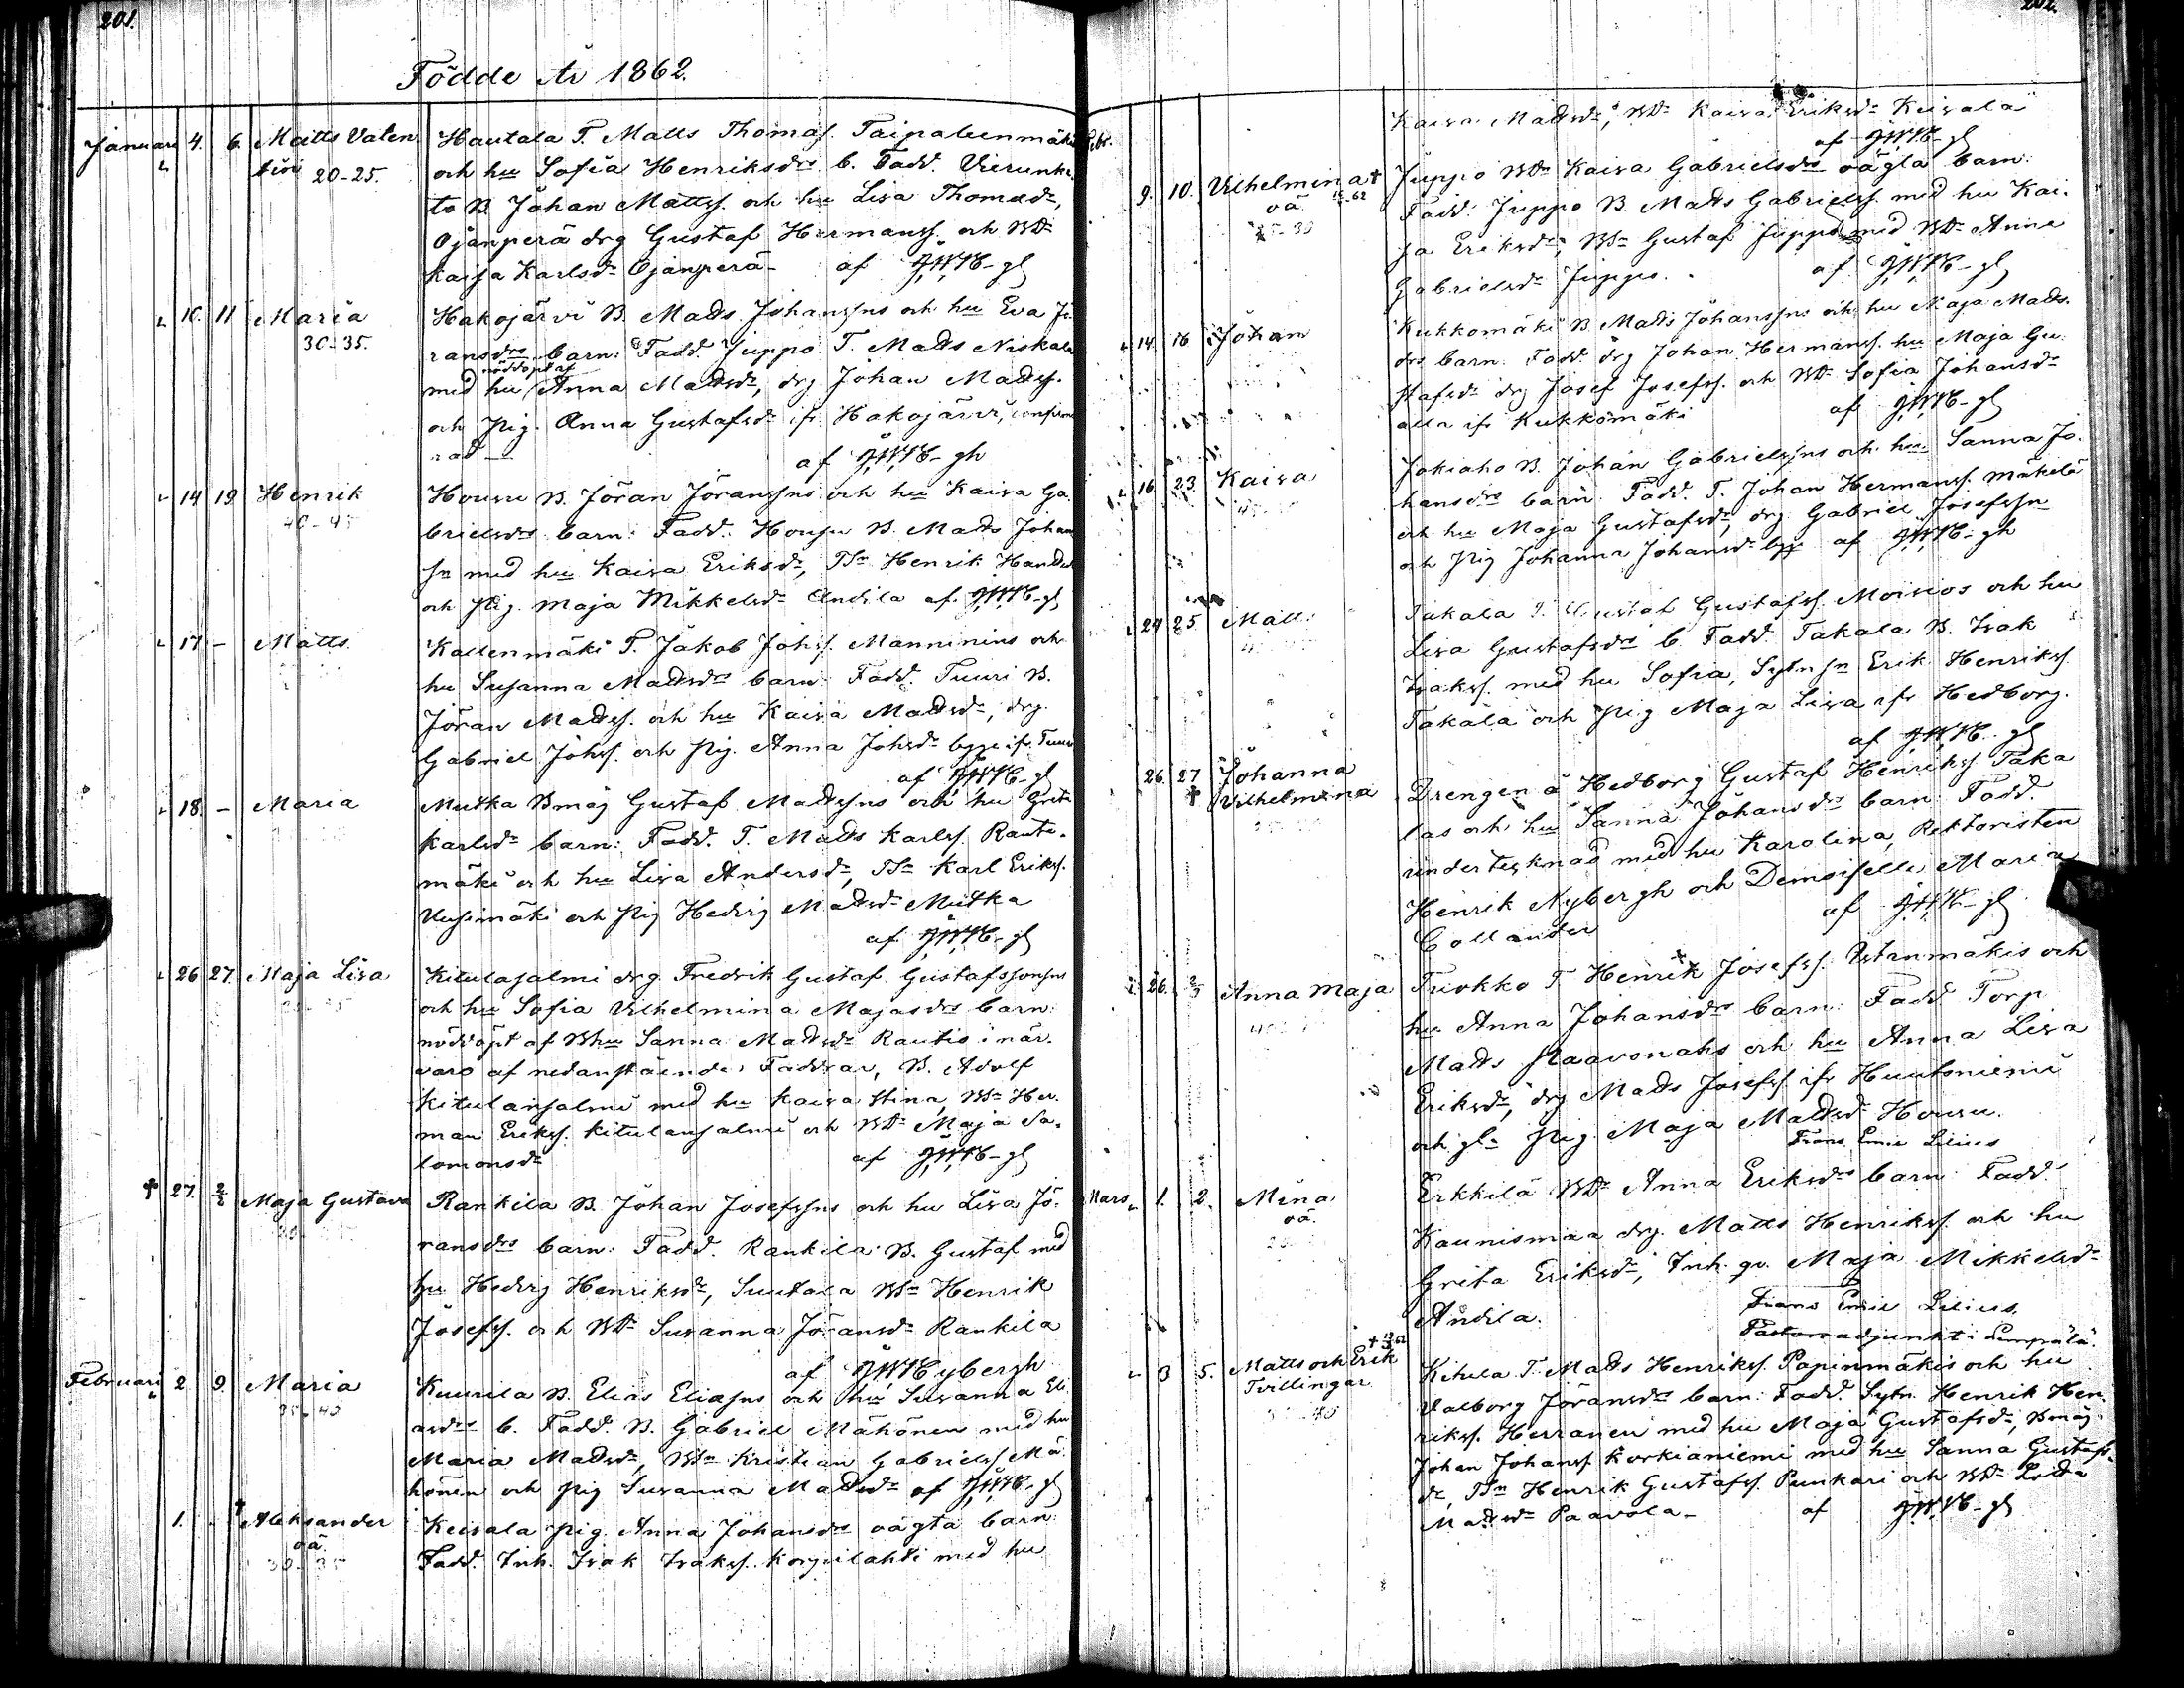 201.
Födde År 1862.
Januari 4. 6. Matts Valen
tin 20-25.
Hautala T. Matts Thomasſ. Taipaleenmäki
och hu Sofia Henriksdrs b. Fadd. Vierunki
to B. Johan Mattsſ. och hu Lisa Thomasdr,
Ojanperä drg Gustaf Hermansſ. och BDr
Kaisa Karlsdr Ojanperä- af JWNb-gh
10. 11 Maria
30-35.
Hakojärvi B. Matts Johanſsns och hu Eva Jö
ransdrs barn: Fadd. Juppo T. Matts Niskala
nöddöpt af
med hu Anna Mattsdr, drg Johan Mattsſ.
och Pig. Anna Gustafsdr ifr Hakojärvi,
af JWNb-gh
14 19 Henrik
40-45
Housu B. Jöran Jöranſsns och hu Kaisa Ga
brielsdrs barn: Fadd. Housu B. Matts Johan
sn med hu Kaisa Eriksdr, TSn Henrik
och Pig. Maja Mikkelsdr Andila af JWNb-gh
17 - Matts
Kallenmäki T. Jakob Johsſ. Manninins och
hu Susanna Mattsdrs barn: Fadd. Tuuri B.
Jöran Mattsſ. och hu Kaisa Mattsdr, drg
Gabriel Johsſ. och Pig. Anna Johsdr bägge ifr. Tuuri
af JWNb-gh
18. - Maria
Mutka Bmåg Gustaf Mattsſns och hu Greta
Karlsdr barn: Fadd. T. Matts Karlsſ. Rauta-
mäki och hu Lisa Andersdr, TSn Karl Eriksſ.
Uusimäki och Pig Hedvig Mattsdr Mutka
af JWNb-gh
26 27. Maja Lisa
Kitulasalmi drg. Fredrik Gustaf Gustafsſonsns
och hu Sofia Vilhelmina Majasdrs barn:
nöddöpt af Bhu Sanna Mattsdr Rautio i när-
varo af nedanstående: Faddrar, B. Adolf
Kitulansalmi med hu Kaisa Stina, BSn Her-
man Eriksſ. Kitulansalmi och BDr Maja Sa-
lomonsdr af JWNb-gh
† 27. 2/2 Maja Gustava
Rankila B. Johan Josefsſns och hu Lisa Jö-
ransdrs barn: Fadd. Rankila B. Gustaf med
hu Hedvig Henriksdr, Suutala BSn Henrik
Josefsſ. och BDr Susanna Jöransdr Rankila
af JWNybergh
Februari 2 9. Maria
35-40
Kuurila B. Elias Eliasſns och hu Susanna Eli
asdrs b. Fadd. B. Gabriel Mähönen med hu
Maria Mattsdr, BSn Kristian Gabrielsſ Mä
hönen och Pig Susanna Mattsdr af JWNb-gh
1. - † Aleksander
oä.
30-35
Keisala Pig. Anna Johansdrs oägta barn:
Fadd. Inh. Isak Isaksſ. Korpilahti med hu
Febr.
Kaisa Mattsdr, BDr Kaisa Eriksdr Keisala
af JWNb-gh
9. 10. Vilhelmina †
oä.
25-30
Juppo BDr Kaisa Gabrielsdrs oägta barn:
Fadd: Juppo B. Matts Gabrielsſ. med hu Kai-
sa Eriksdr, BSn Gustaf Juppo med BDr Anna
Gabrielsdr Juppo. af JWNb-gh
14. 16 Johan
Kukkomäki B Matts Johanſsns och hu Maja Matts-
drs barn: Fadd. drg Johan Hermansſ. hu Maja Gu-
stafsdr drg Josef Josefsſ. och BDr Sofia Johansdr
alla ifr Kukkomäki af JWNb-gh
16. 23. Kaisa
Jokiaho B. Johan Gabrielsſns och hu Sanna Jo-
hansdrs barn: Fadd. T. Johan Hermansſ. Mäkelä
och hu Maja Gustafsdr, drg Gabriel Josefsſn
och Pig Johanna Johansdr af JWNb-gh
24 25. Matt
Takala T. Gustaf Gustafsſ. Moisios och hu
Lisa Gustafsdrs b. Fadd. Takala B. Isak
Isaksſ. med hu Sofia, Sytn sn Erik Henriksſ
Takala och Pig Maja Lisa ifr Hedborg.
af JWNb-gh
26. 27 Johanna
† Vilhelmina
Drengen å Hedborg Gustaf Henriksſ Taka
las och hu Sanna Johansdrs barn: Fadd.
undertecknad med hu Karolina, Rektoristen
Henrik Nybergh och Demoiselle Maria
Collander af JWNb-gh
26. 2/3 Anna Maja
Trokko T Henrik Josefsſ. och
hu Anna Johansdrs barn: Fadd Torp.
Matts Staavonaho och hu Anna Lisa
Eriksdr, drg Matts Josefsſ ifr Huutoniemi
och Pig. Maja Mattsdr Housu.
Frans Emil Lilius
Mars 1. 2. Mina
oä.
Erkkilä BDr Anna Eriksdrs barn: Fadd.
Kaunismaa drg. Matts Henriksſ. och hu
Greta Eriksdr, Inh. qv. Maja Mikkelsdr
Andila. Frans Emil Lilius.
Pastorsadjunkt i Lempälä.
3 5. Matts och Erik
Tvillingar
40
Kitula T. Matts Henriksſ. Papinmäkis och hu
Valborg Jöransdrs barn: Fadd. Sytn. Henrik Hen-
riksſ. Herranen med hu Maja Gustafsdr, Bmåg
Johan Johansſ Korkianiemi med hu Sanna Gustafs-
dr, TSn Henrik Gustafsſ. Punkari och BDr
Mattsdr Paavola- af JWNb-gh